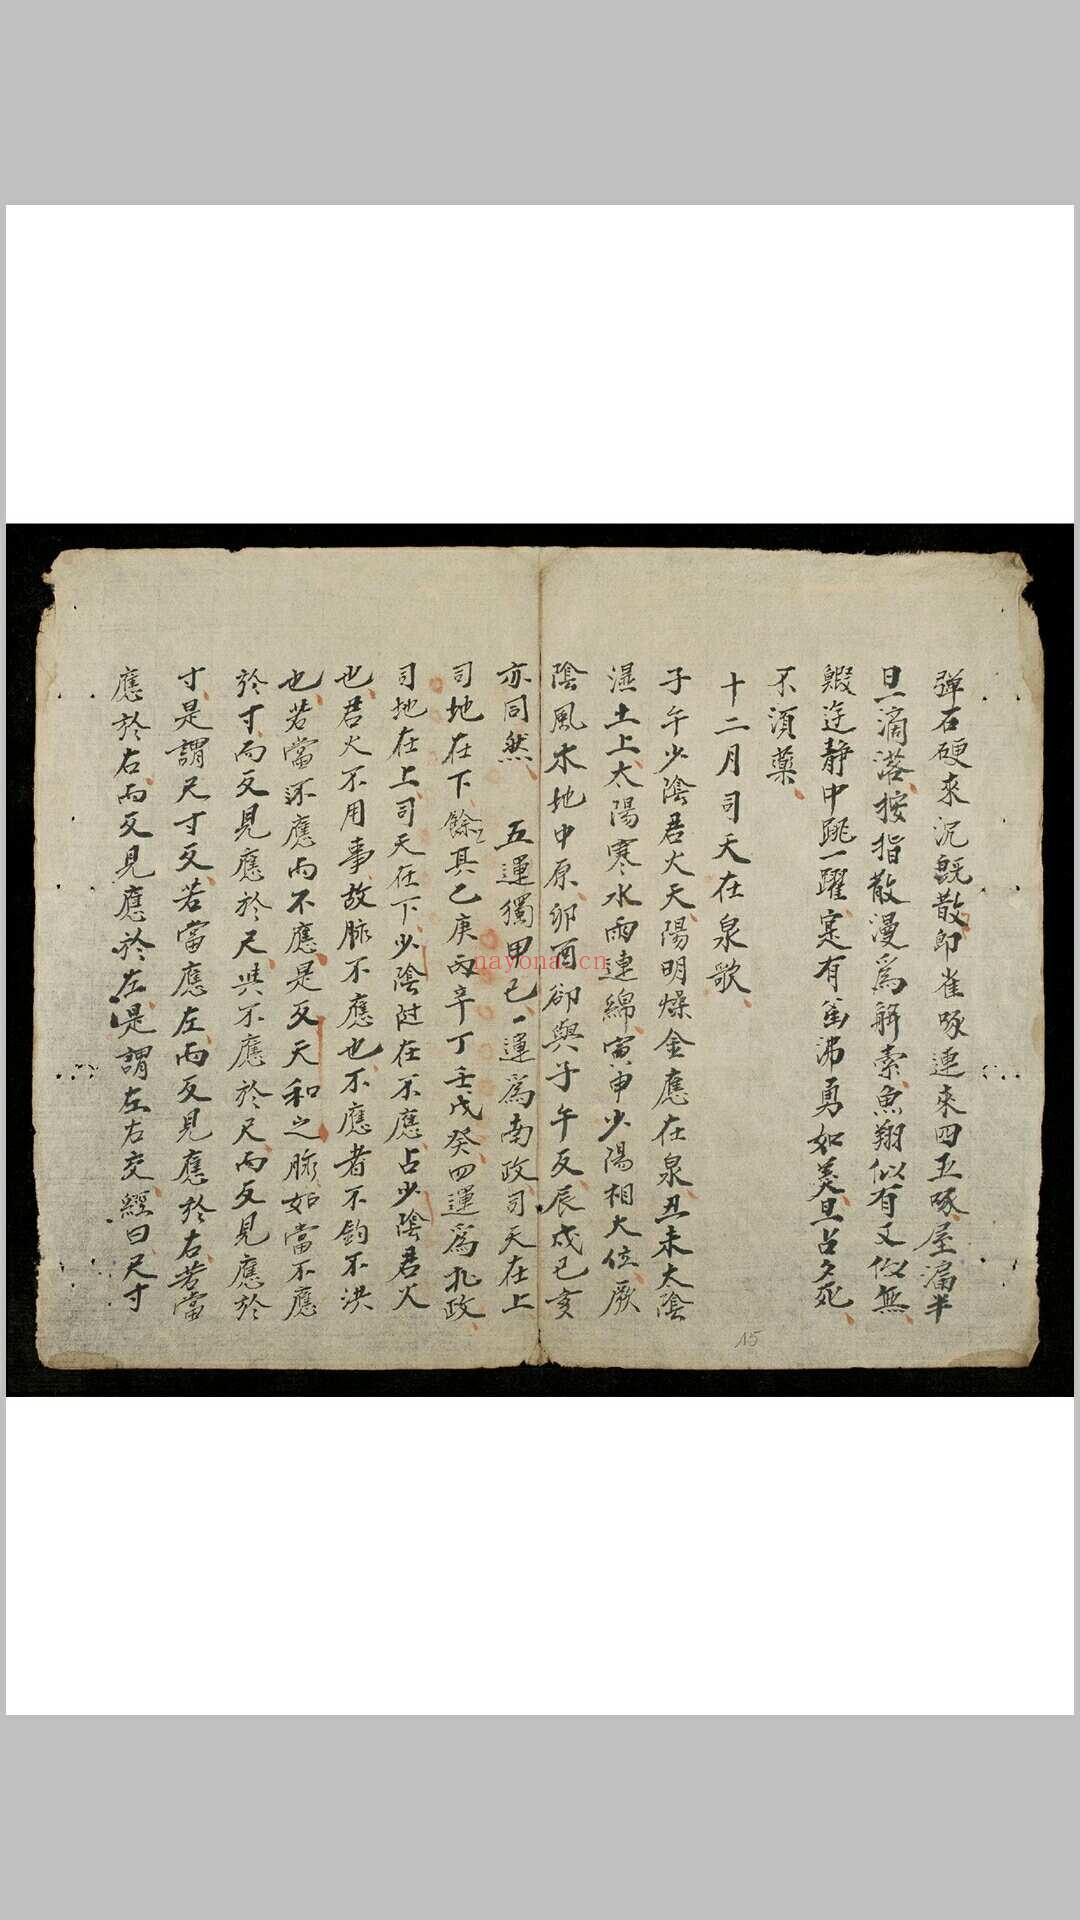 彈石硬來沉既散即雀啄連來四五啄屋漏半
日一滴落按指散漫為解索魚翔似有又似無
鰕遊靜中跳一躍更有釜沸勇如羹旦占夕死
不須藥
十二月司天在泉歌
子午少陰君火天陽明燥金應在泉丑未太陰
濕土上太陽寒水雨連綿寅申少陽相火位厥
陰風木地中原卯酉卻與子午反辰戌巳亥
亦同然 五運獨甲己一運為南政司天在上
司地在下餘其乙庚丙辛丁壬戊癸四運為北政
司地在上司天在下少陰所在不應占少陰君火
也君火不用事故脉不應也不應者不鈞不洪
也若當不應而不應是反天和之脉如當不應
於寸而反見應於尺其不應於尺而反見應於
寸是謂尺寸反若當應左而反見應於右若當
應於右而反見應於左是謂左右交經曰尺寸
15
nayona.cn